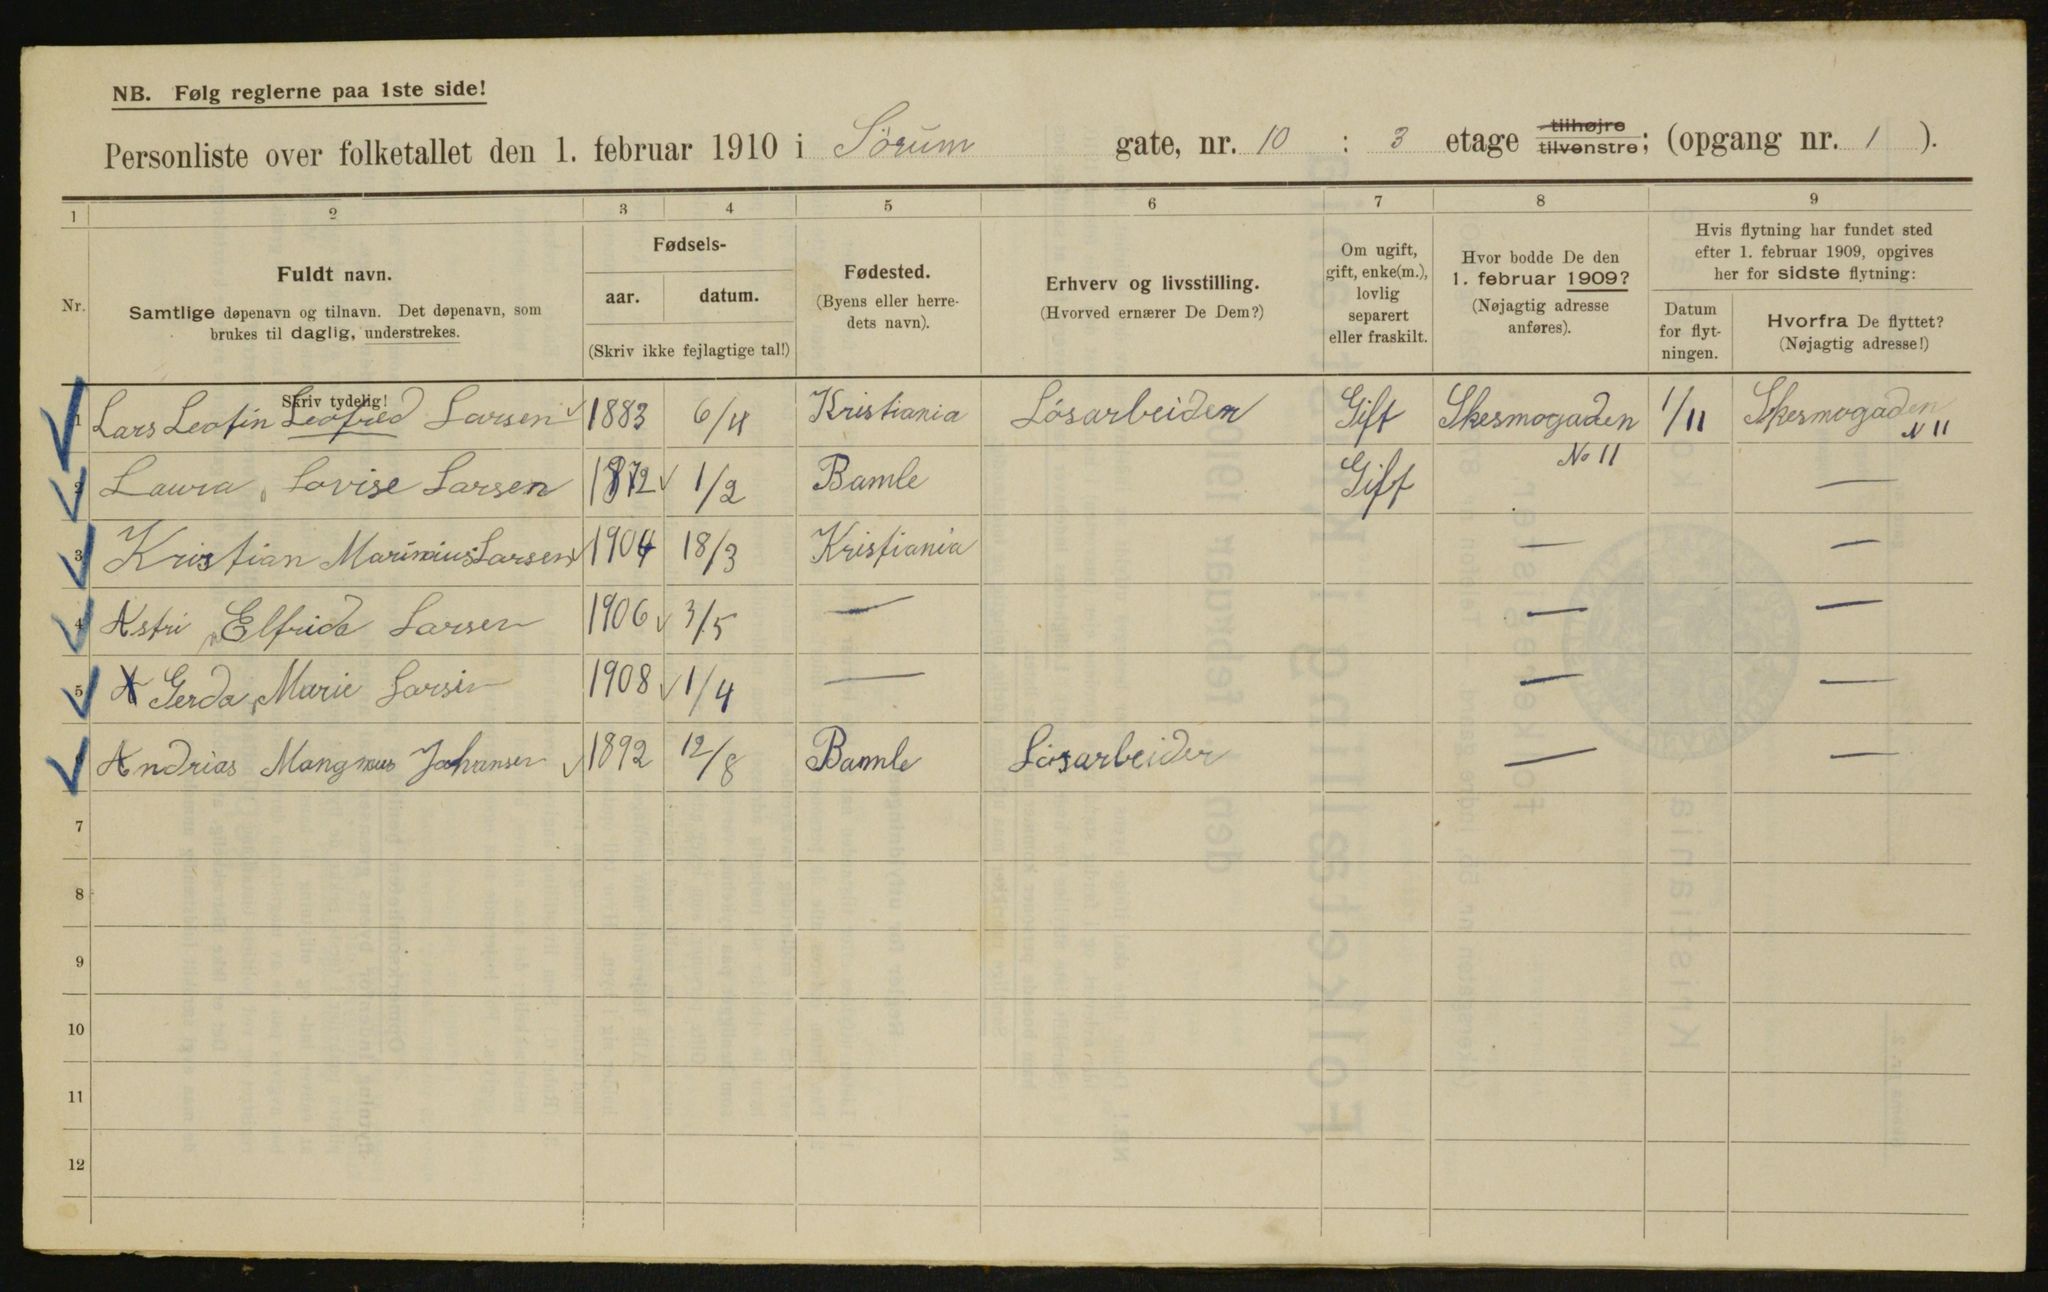 NB. Følg reglerne paa 1ste side!
Personliste over folketallet den 1. februar 1910 i Sörum gate, nr. 10 : 3 etage tilhøjre tilvenstre; (opgang nr. 1 ).
1 2 3 4 5 6 7 8 9
Nr.
Fuldt navn.
Samtlige døpenavn og tilnavn. Det døpenavn, som
brukes til daglig, understrekes.
Skriv tydelig!
Fødsels-
aar. datum.
(Skriv ikke fejlagtige tal!)
Fødested.
(Byens eller herre-
dets navn).
Erhverv og livsstilling.
(Hvorved ernærer De Dem?)
Om ugift,
gift, enke(m.),
lovlig
separert
eller fraskilt.
Hvor bodde De den
1. februar 1909?
(Nøjagtig adresse
anføres).
Hvis flytning har fundet sted
efter 1. februar 1909, opgives
her for sidste flytning:
Datum
for flyt-
ningen.
Hvorfra De flyttet?
(Nøjagtig adresse!)
1 Lars Leofin Leofred Larsen 1883 6/4 Kristiania Lösarbeider Gift Skesmogaden No 11 1/11 Skesmogaden N 11
2 Laura Lovise Larsen 1872 1/2 Bamle Gift —
3 Kristian Marinius Larsen 1904 18/3 Kristiania — —
4 Astri Elfrida Larsen 1906 3/5 — — —
5 Gerda Marie Larsen 1908 1/4 — — —
Andrias Mangnus Johansen 1892 12/8 Bamle Lösarbeider — —
7
8
9
10
11
12